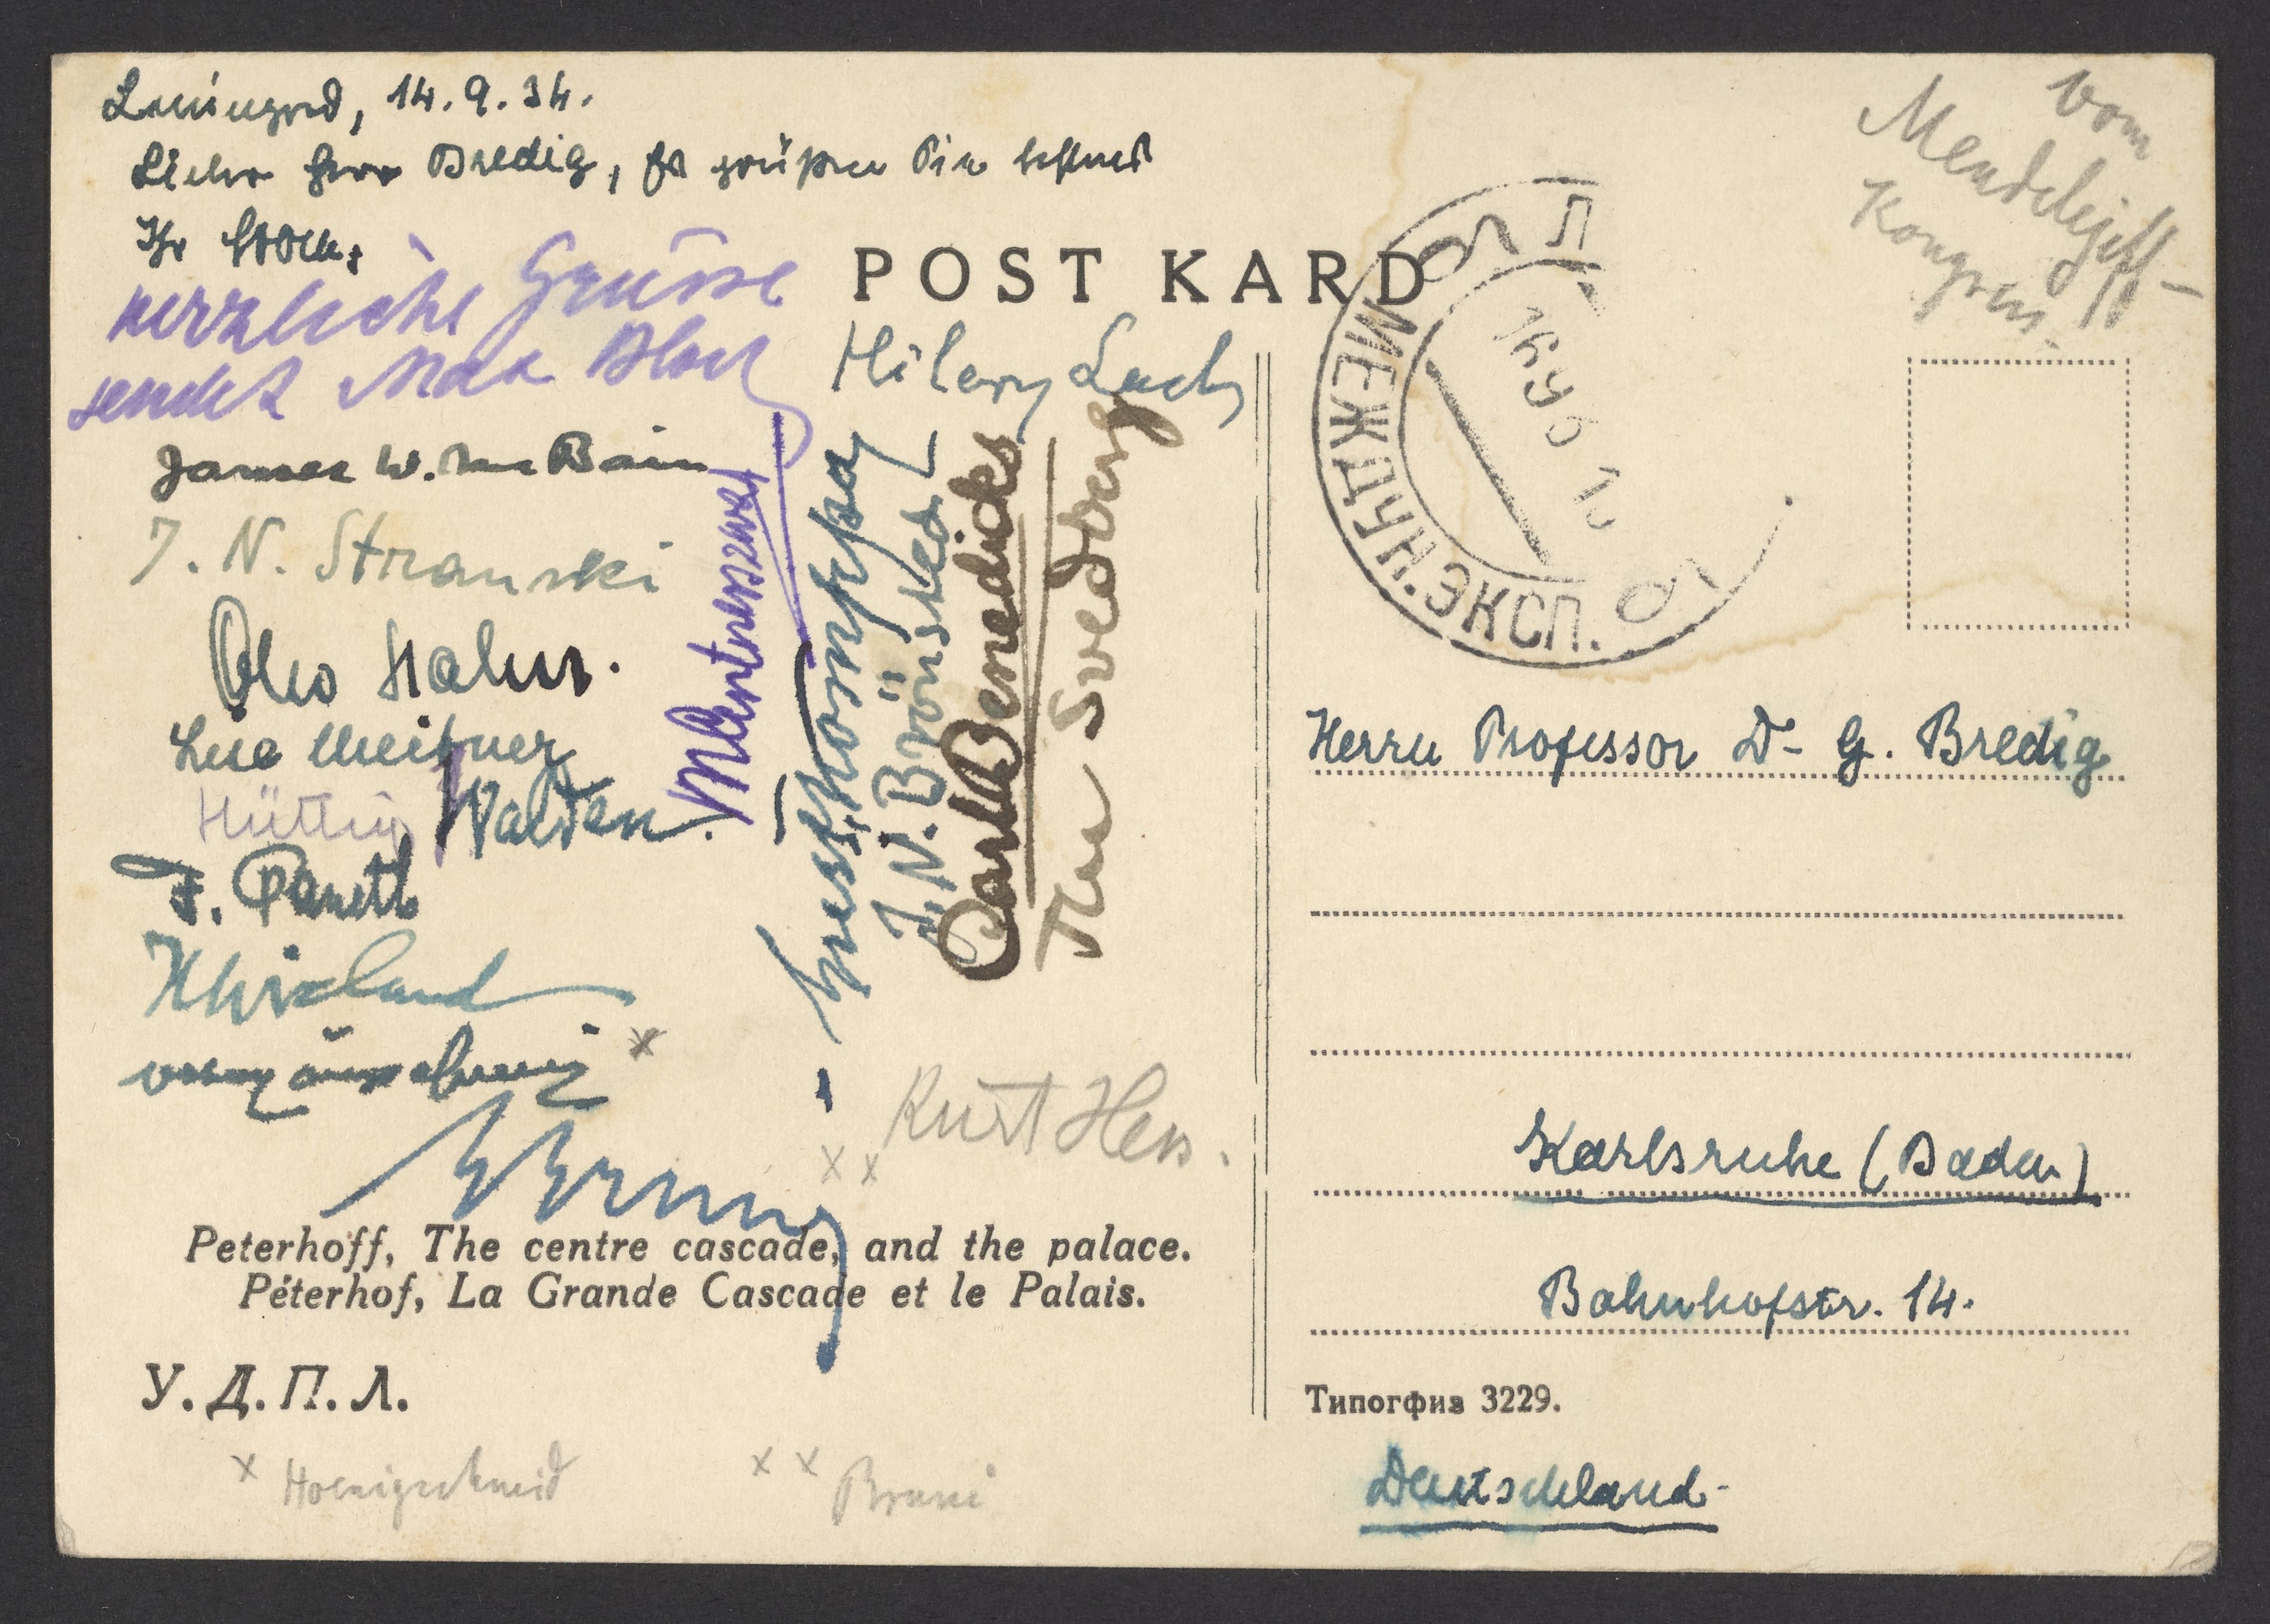 Leningrad, 14.9.34.
Lieber Herr Bredig, Es grüßen Sie bestens
Ihr Stock.
herzliche Grüsse
sendet Max
James W. McBain
I. N. Stranski
Otto Hahn.
Lise Meitner
Hüttig
Walden.
F. Paneth
H Wieland
Kurt Hess.
Hilary Lach
M Centnerszwer
J. N. Brönsted
Carl Benedicks
The Svedberg
POST KARD
Vom
Mendelejeff-
Kongress.
МЕЖДУН. ЭКСП.
Herrn Professor Dr G. Bredig
Karlsruhe (Baden)
Bahnhofstr. 14.
Deutschland
Peterhoff, The centre cascade, and the palace.
Péterhof, La Grande Cascade et le Palais.
У. Д. П. Л.
Типогфиз 3229.
x Hoenigschmid
x x Bruni